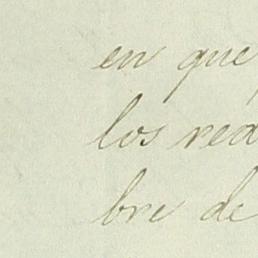 en que
los red
bre de